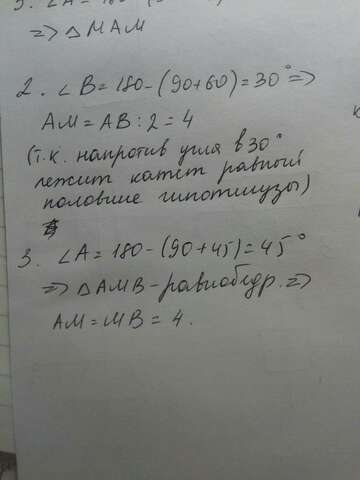 => △ MAM
2. ∠B = 180-(90+60) = 30° =>
AM = AB : 2 = 4
(т.к. напротив угла в 30°
лежит катет равный
половине гипотенузы)
3. ∠A = 180-(90+45) = 45°
=> △ AMB - равнобедр. =>
AM = MB = 4.